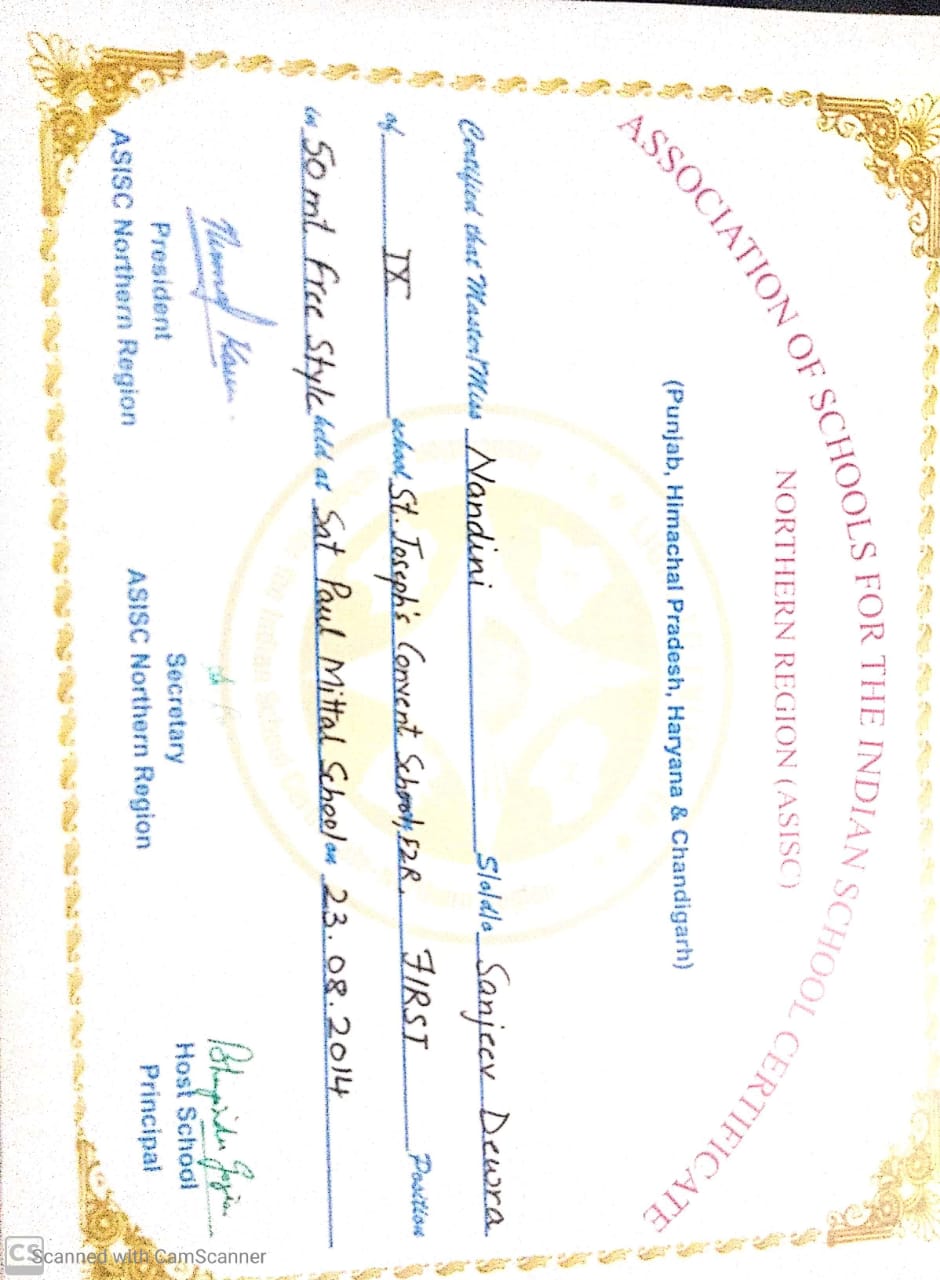 ASSOCIATION OF SCHOOLS FOR THE INDIAN SCHOOL CERTIFICATE
NORTHERN REGION (ASISC)
(Punjab, Himachal Pradesh, Haryana & Chandigarh)
Certified that Master/Miss Nandini S/o/d/o Sanjeev Dewra
of IX school St. Joseph's Convent School, FZR. FIRST Position
in 50 mt Free Style held at Sat Paul Mittal School on 23.08.2014
President
ASISC Northern Region
Secretary
ASISC Northern Region
Host School
Principal
CS Scanned with CamScanner